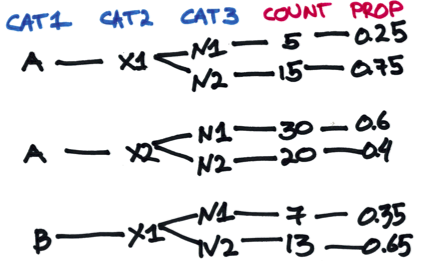 CAT1 CAT2 CAT3 COUNT PROP
A X1 N1 5 0.25
N2 15 0.75
A X2 N1 30 0.6
N2 20 0.4
B X1 N1 7 0.35
N2 13 0.65